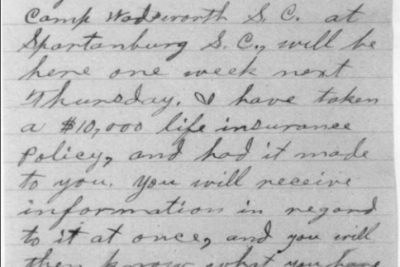 Camp Wadsworth S. C. at
Spartanburg S. C., will be
here one week next
Thursday. I have taken
a $10,000 life insurance
policy, and had it made
to you. You will receive
information in regard
to it at once, and you will
then know what you have